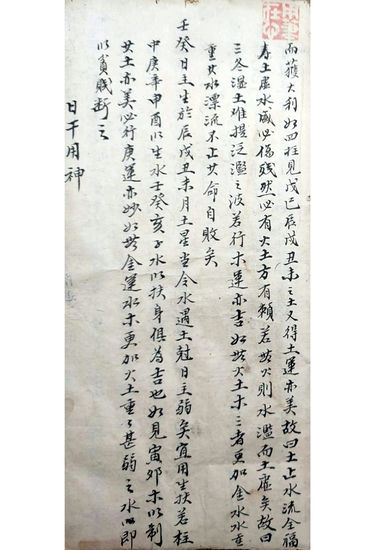 用筆在心
而獲大利如四柱見戊己辰戌丑未之土又得土運亦美故曰土止水流全福
壽土虛水盛必傷殘然必有火土方有賴若無火則水濫而土虛矣故曰
三冬濕土難提泛濫之波若行木運亦吉如無火土木三者更加金水水重
重其水漂流不止其命自敗矣
壬癸日主生於辰戌丑未月土星當令水遇土尅日主弱矣宜用生扶若柱
中庚辛申酉以生水壬癸亥子水以扶身俱為吉也如見寅卯木以制
其土亦美必行庚運亦妙如無金運水木更加火土重重甚弱之水即
以貧賤斷之
日干用神